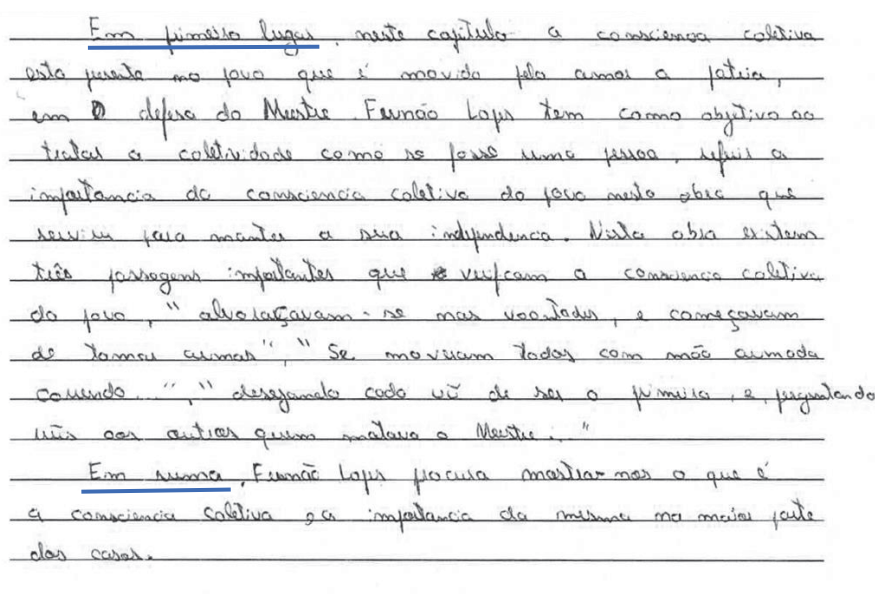 Em primeiro lugar, neste capitulo a consciencia coletiva
esta presente no povo que é movido pelo amor a patria,
em defesa do Mestre. Fernão Lopes tem como objetivo ao
tratar a coletividade como se fosse uma pessoa, referir a
importancia da consciencia coletiva do povo nesta obra que
serviu para manter a sua independencia. Nesta obra existem
três passagens importantes que verificam a consciencia coletiva
do povo, "alvoraçavam-se nas voontades, e começavam
de tomar armas", "Se moveram todos com mão armada
correndo...", "desejando cada uũ de ser o primeiro, e, perguntando
uũs aos outros quem matava o Mestre..."
Em suma, Fernão Lopes procura mostrar-nos o que é
a consciencia coletiva e a importancia da mesma na maior parte
dos casos.